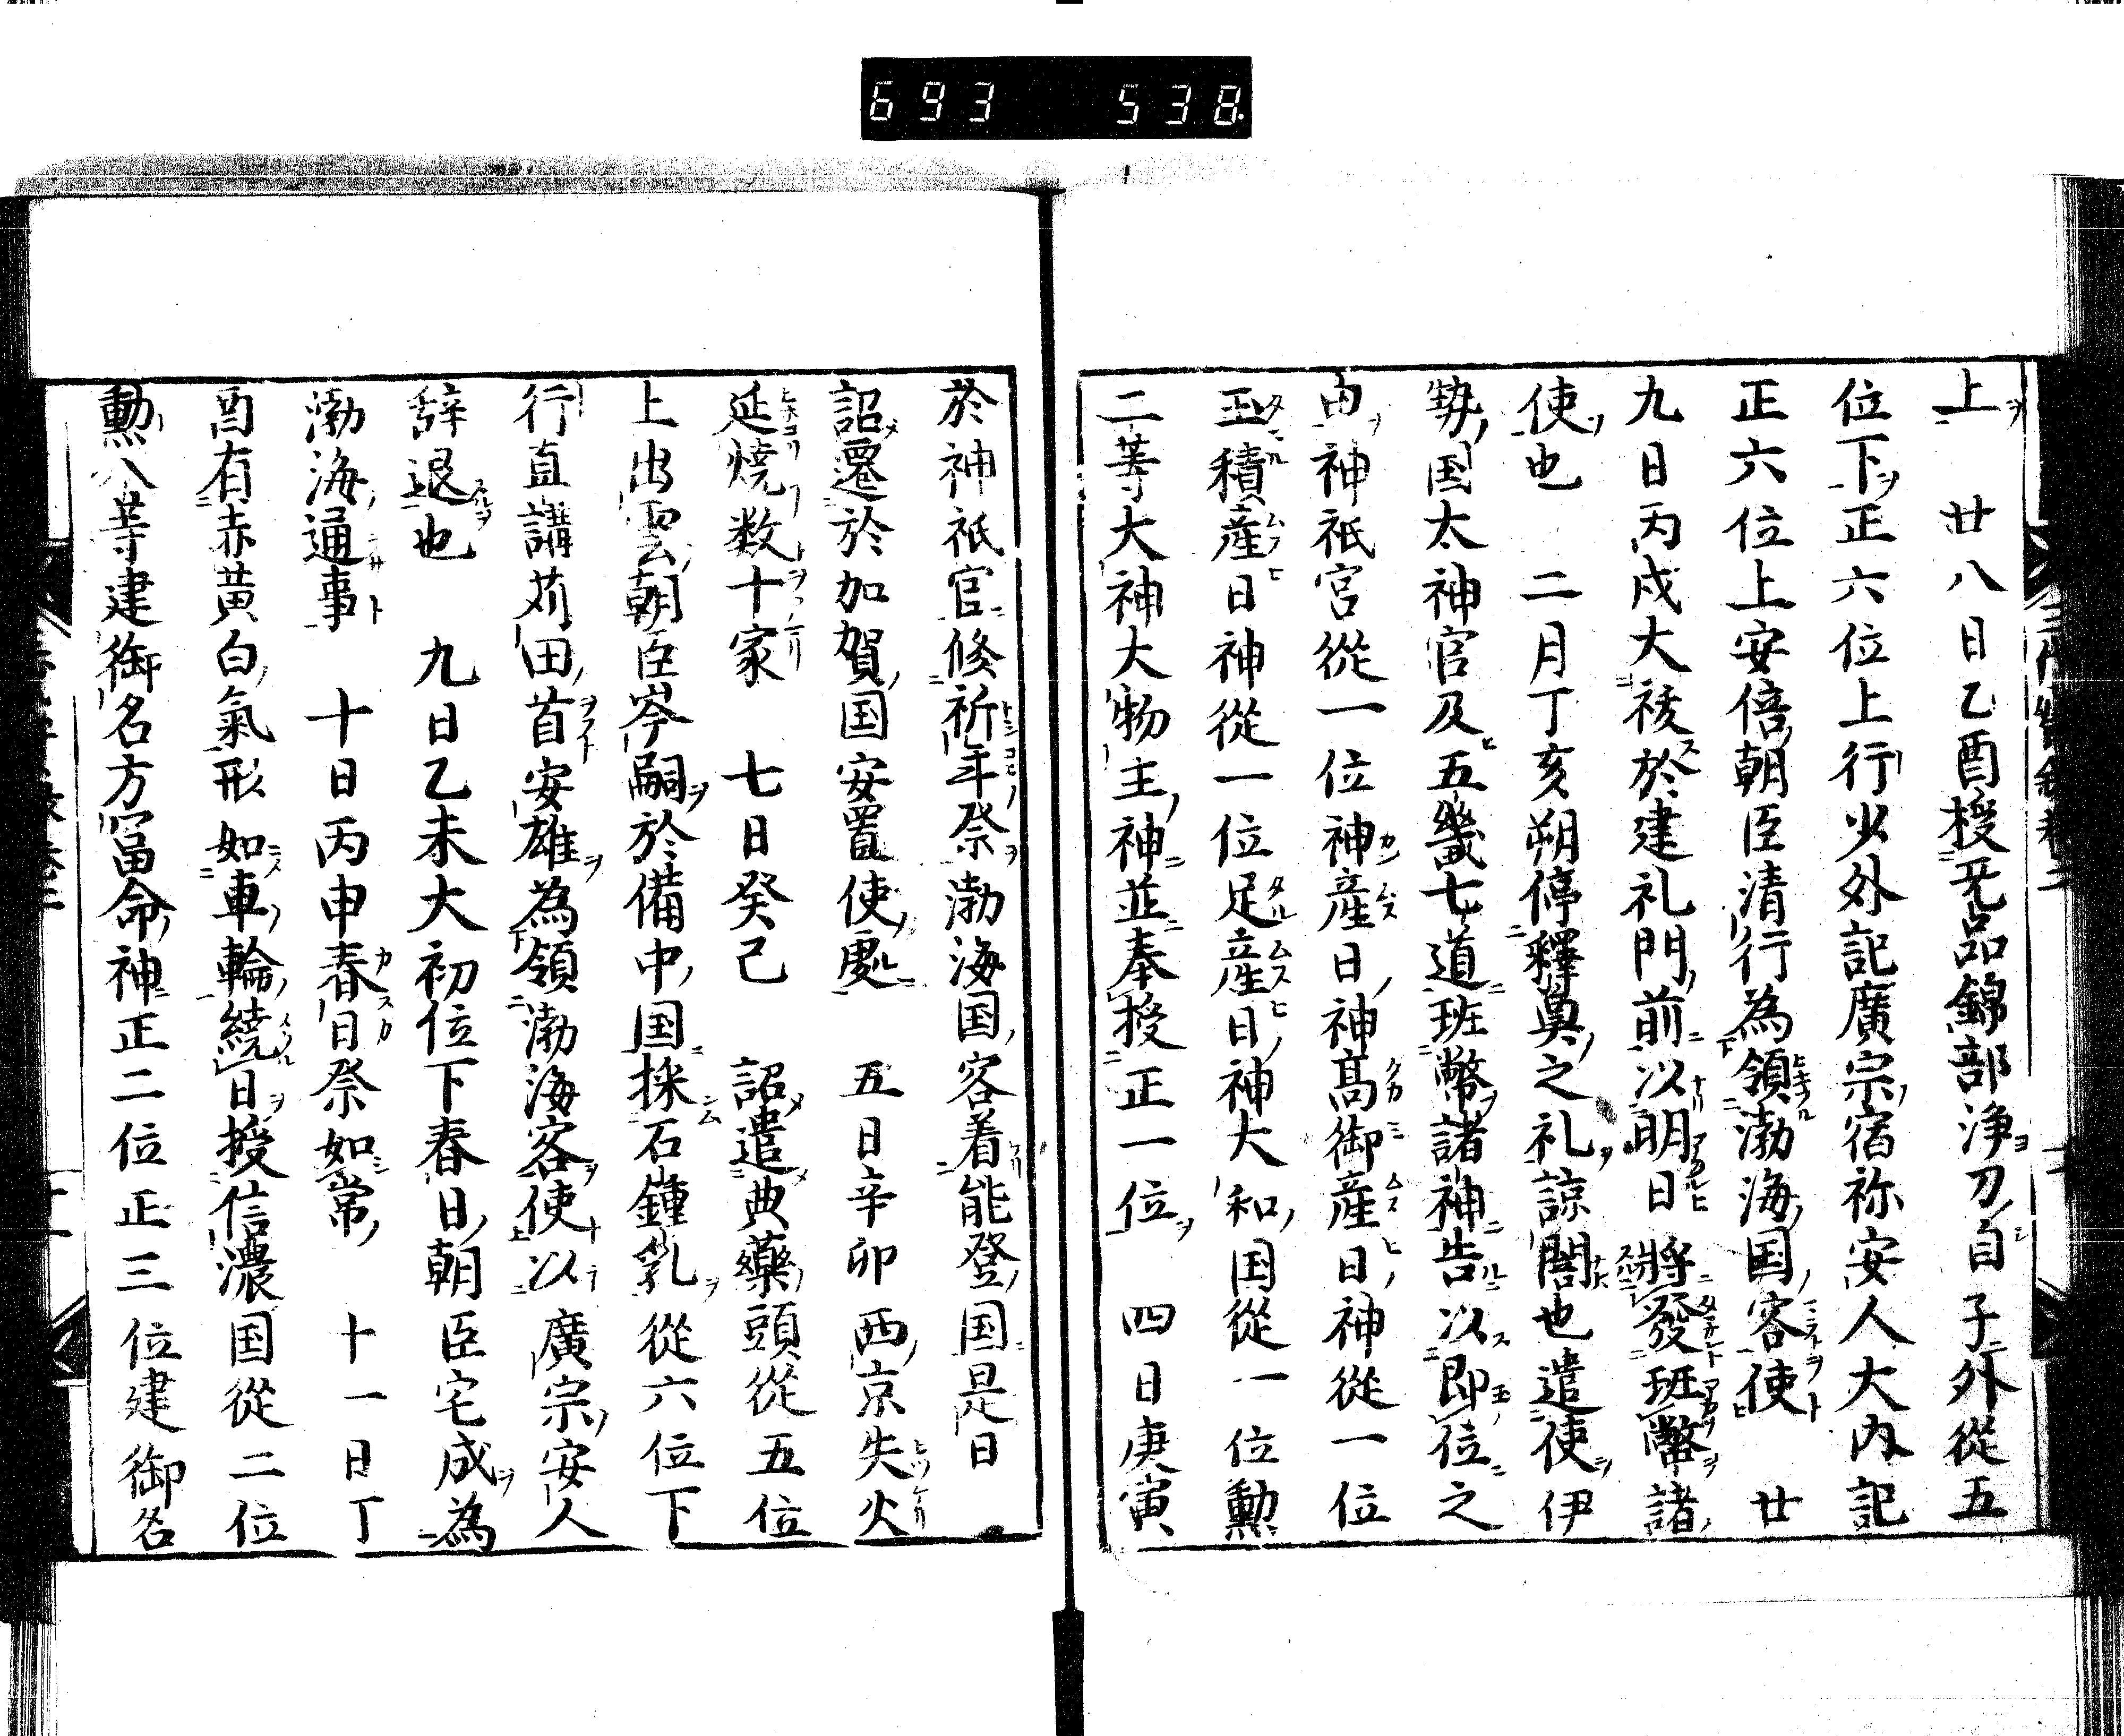 693 538
上　廿八日乙酉授无品錦部浄刀自子外從五
位下正六位上行少外記廣宗宿祢安人大内記
正六位上安倍朝臣清行為領渤海国客使　廿
九日丙戌大祓於建礼門前以明日將發班幣諸
使也　二月丁亥朔停釋奠之礼諒闇也遣使伊
勢国太神宮及五畿七道班幣諸神告以即位之
由神祇官從一位神産日神髙御産日神從一位
玉積産日神從一位足産日神大和国從一位勳
二等大神大物主神並奉授正一位　四日庚寅
於神祇官修祈年祭渤海国客着能登国是日
詔遷於加賀国安置使處　五日辛卯西京失火
延焼数十家　七日癸己　詔遣典藥頭從五位
上出雲朝臣岑嗣於備中国採石鍾乳從六位下
行直講苅田首安雄為領渤海客使以廣宗安人
辞退也　九日乙未大初位下春日朝臣宅成為
渤海通事　十日丙申春日祭如常　十一日丁
酉有赤黄白氣形如車輪繞日授信濃国從二位
勳八等建御名方富命神正二位正三位建御名